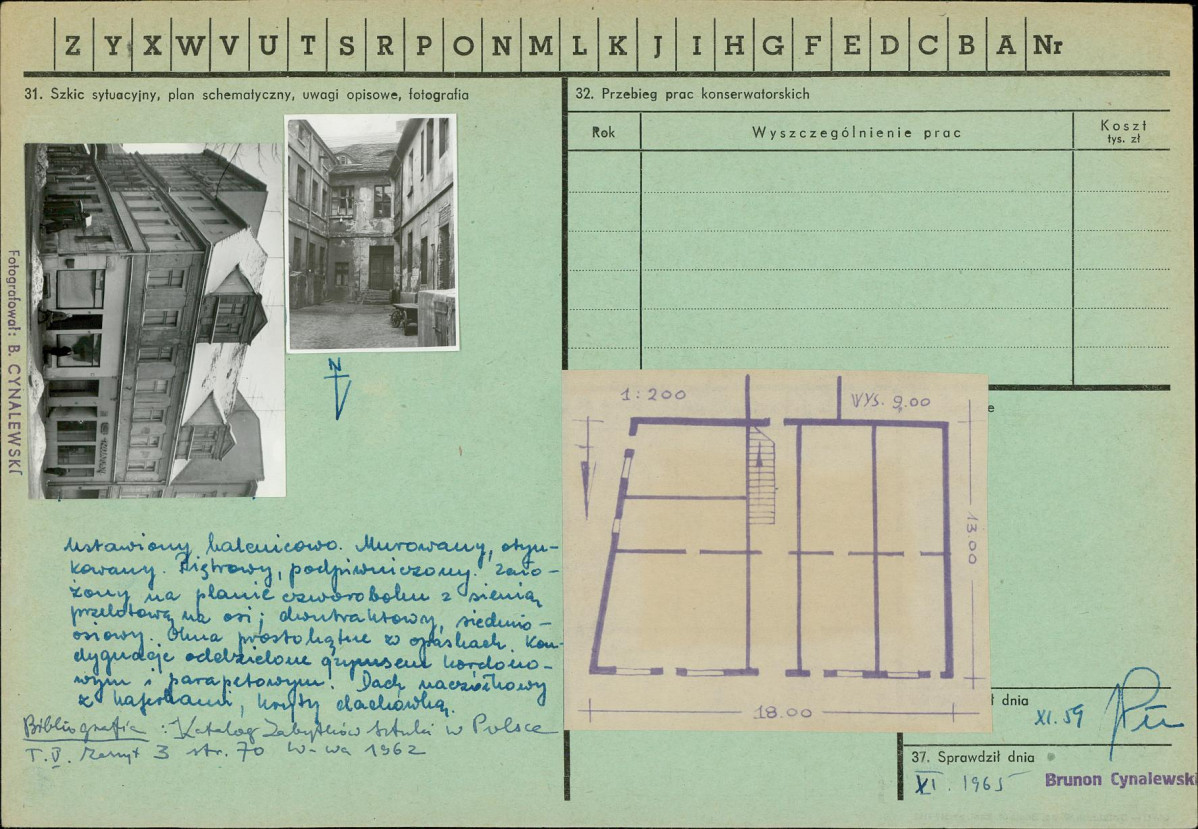 Z Y X W V U T S R P O N M L K J I H G F E D C B A Nr
31. Szkic sytuacyjny, plan schematyczny, uwagi opisowe, fotografia
Fotografował: B. CYNALEWSKI
N
Ustawiony kalenicowo. Murowany, otyn-
kowany. Piętrowy, podpiwniczony. Zało-
żony na planie czworoboku z sienią
przelotową na osi; dwutraktowy, siedmio-
osiowy. Okna prostokątne w opaskach. Kon-
dygnacje oddzielone gzymsem kordono-
wym i parapetowym. Dach naczółkowy
z kaferkami, kryty dachówką.
Bibliografia: Katalog Zabytków Sztuki w Polsce
T. V. zeszyt 3 str. 70 W-wa 1962
32. Przebieg prac konserwatorskich
Rok
Wyszczególnienie prac
Koszt
tys. zł
1:200
WYS. 9.00
13.00
18.00
e
ł dnia
XI. 59
37. Sprawdził dnia
XI. 1965
Brunon Cynalewski